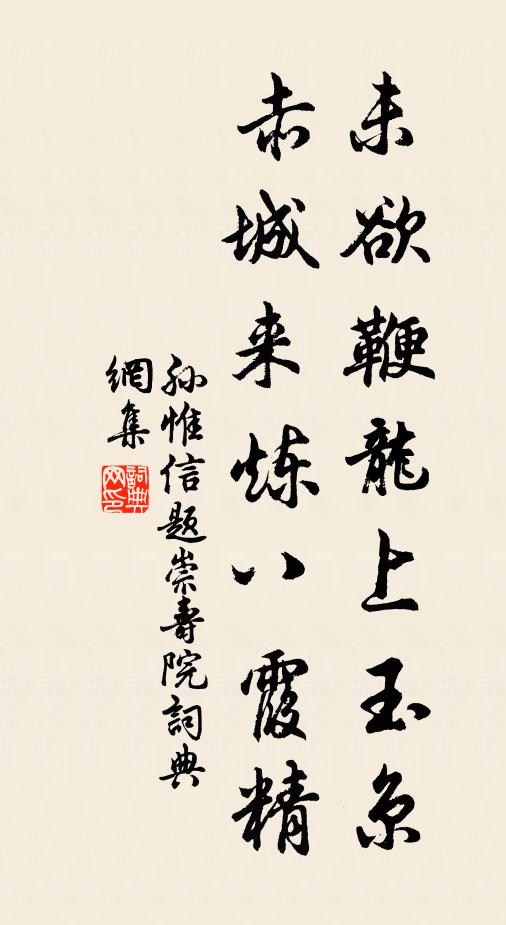 未欲鞭龍上玉京
赤城来炼八霞精
孙惟信题崇壽院詞典
網集
詞典网印